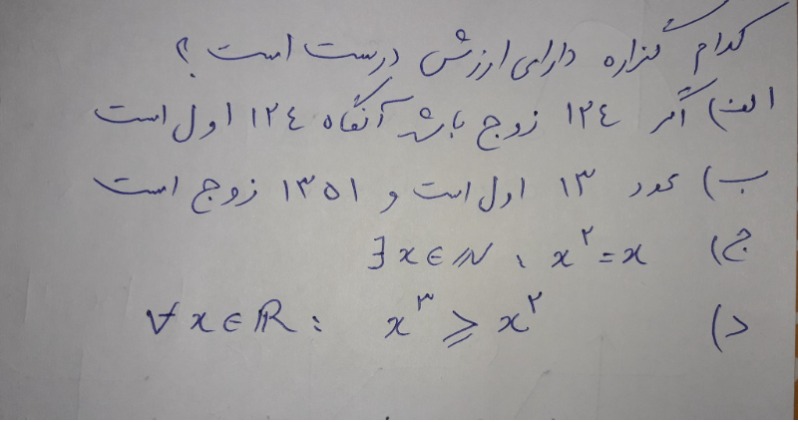 کدام گزاره دارای ارزش درست است ؟
الف) اگر ۱۲۴ زوج باشد آنگاه ۱۲۴ اول است
ب) عدد ۱۳ اول است و ۱۳۵۱ زوج است
ج) ∃x∈ℕ ، x²=x
د) ∀x∈ℝ : x³ ≥ x²